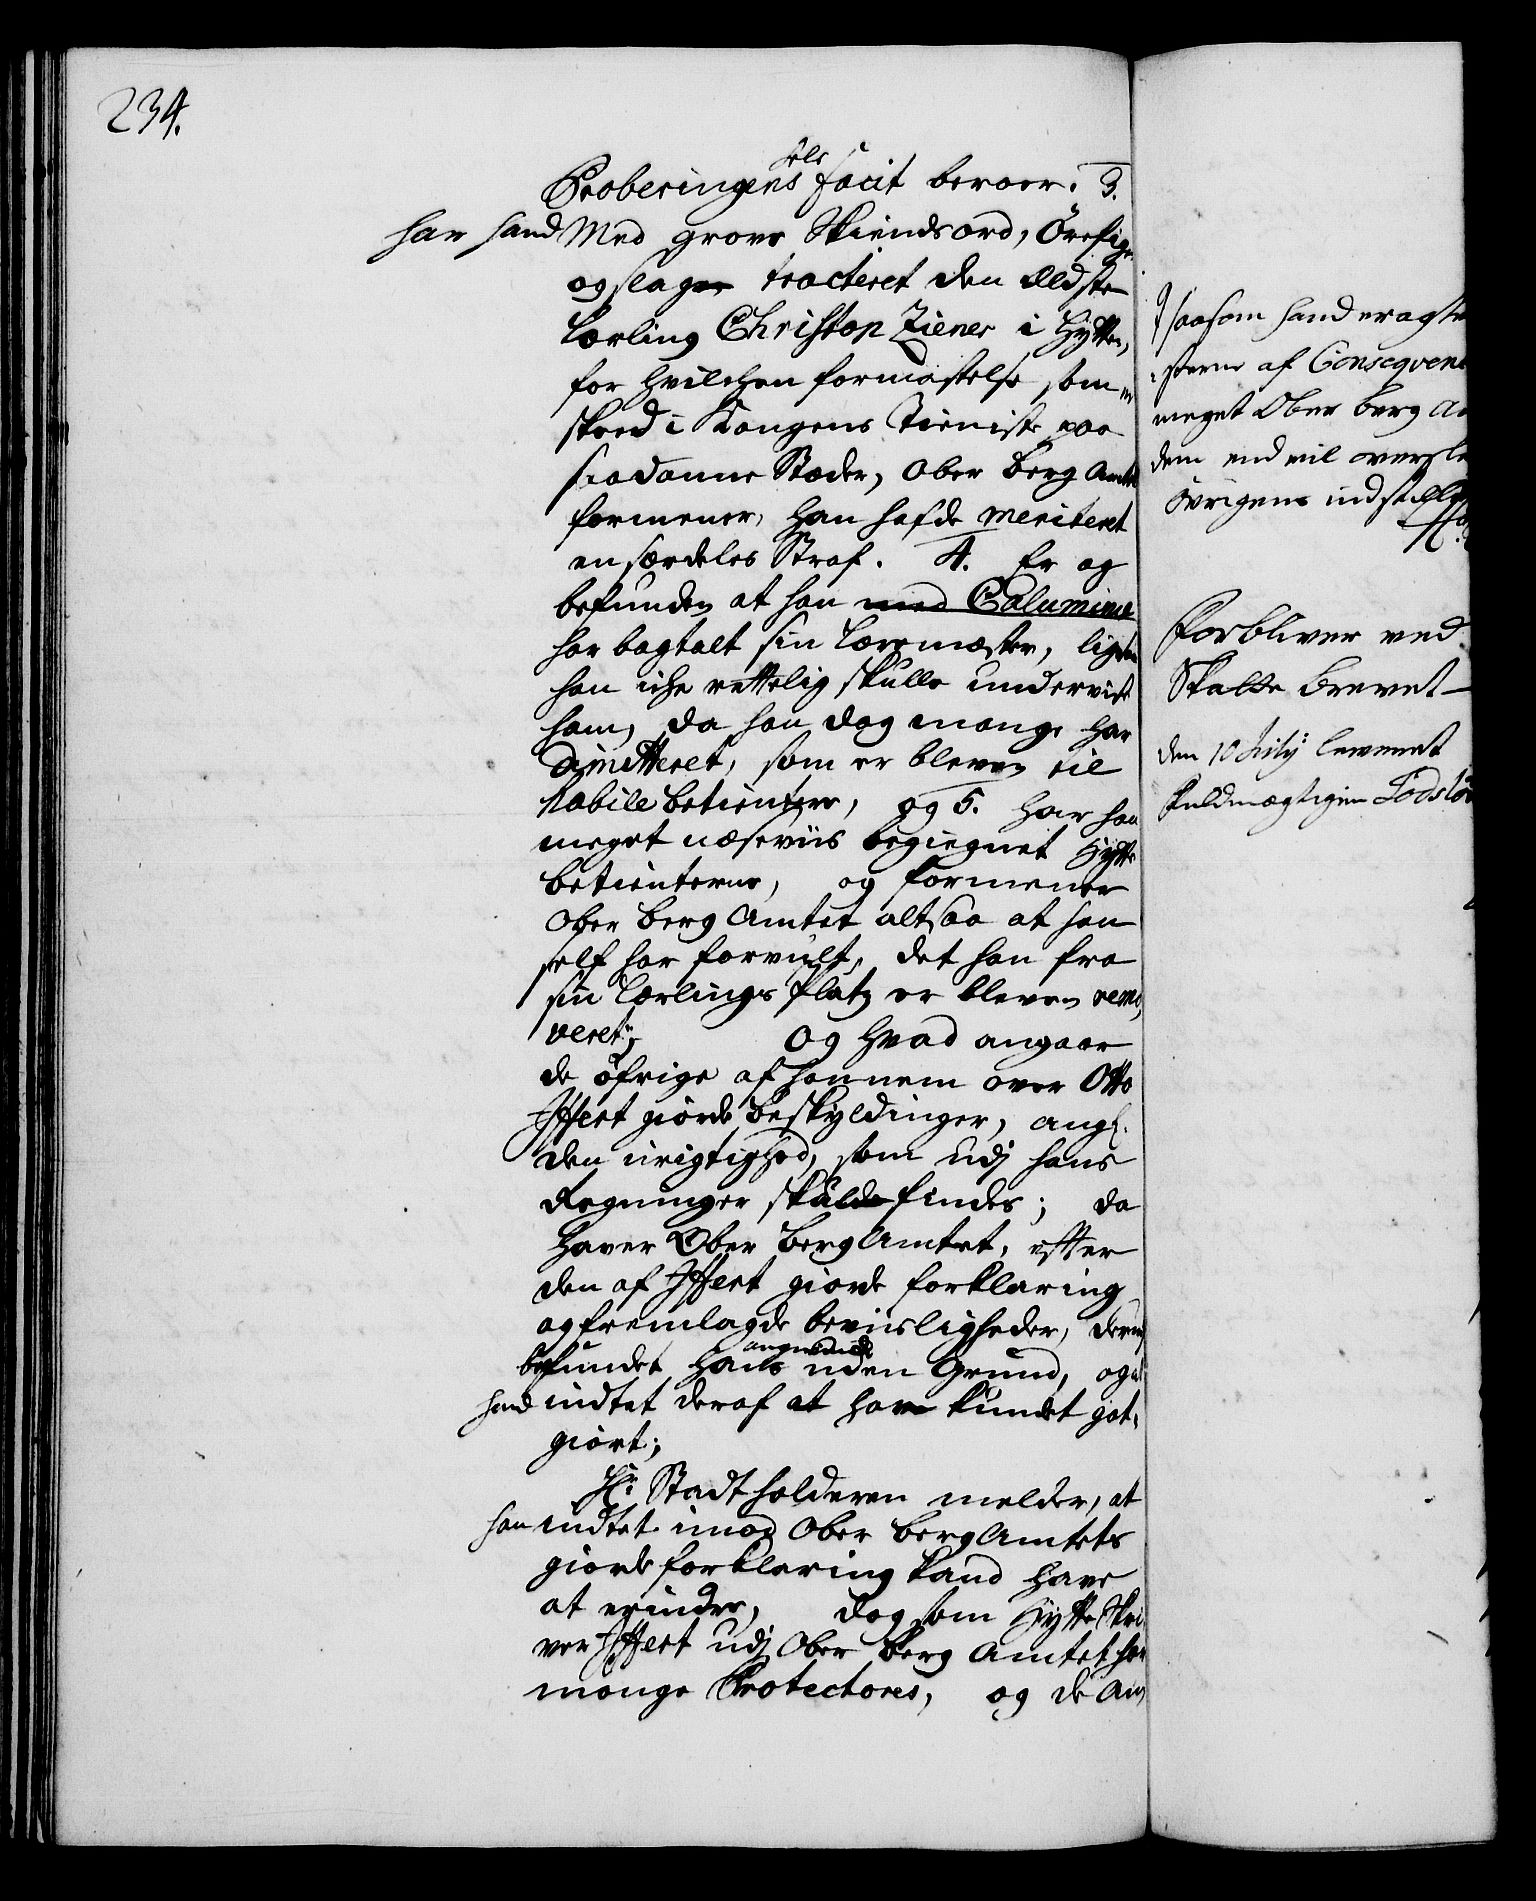 234.
Proberingens heele facit beroer. 3.
har hand Med grove Skiendsord, Örefiger
og slag tracteret den Eldste
Lærling Christop Ziener i Hytten,
for hvilchen formastelse som er
skeed i Kongens Tieniste paa
saadanne Stæder, Ober Berg Amtet
formener, han hafde meriteret
en særdeles Straf. 4. Er og
befunden at han med Calumnie
har bagtalt sin Læremæster, ligesom
han iche rettelig skulle underviist
ham, da han dog mange har
dimitteret, som er bleven til
habile betientere, og 5. har han
meget næseviis begiegnet Hytte
betienterne, og formener
Ober Berg Amtet altsaa at han
self har forvult, det han fra
sin Lærlings Platz er bleven remo,
veret; Og hvad angaar
de öfrige af hannem over Otto
Iffert giorde beskyldinger, angl.
den urigtighed, som udj hans
Regninger skulde findes; da
haver Ober Berg Amtet, efter
den af Iffert giorde forklaring
og fremlagde beviisligheder, derudj
befundet hans angivende uden Grund, og at
hand indtet deraf at have kundet got,
giort;
Hr. Stadtholderen melder, at
han indtet imod Ober Berg Amtets
giorde forklaring kand have
at erindre, dog som Hytte Skri
ver Iffert udj Ober Berg Amtet har
mange Protectores, og de An,
saasom hand eragte
af Conseqvence
meget Ober Berg A
dem end vil overs
övrigens indstille
Forbliver ved
Skatte brevet
den 10 July leveret
fuldmægtigen Lodsl